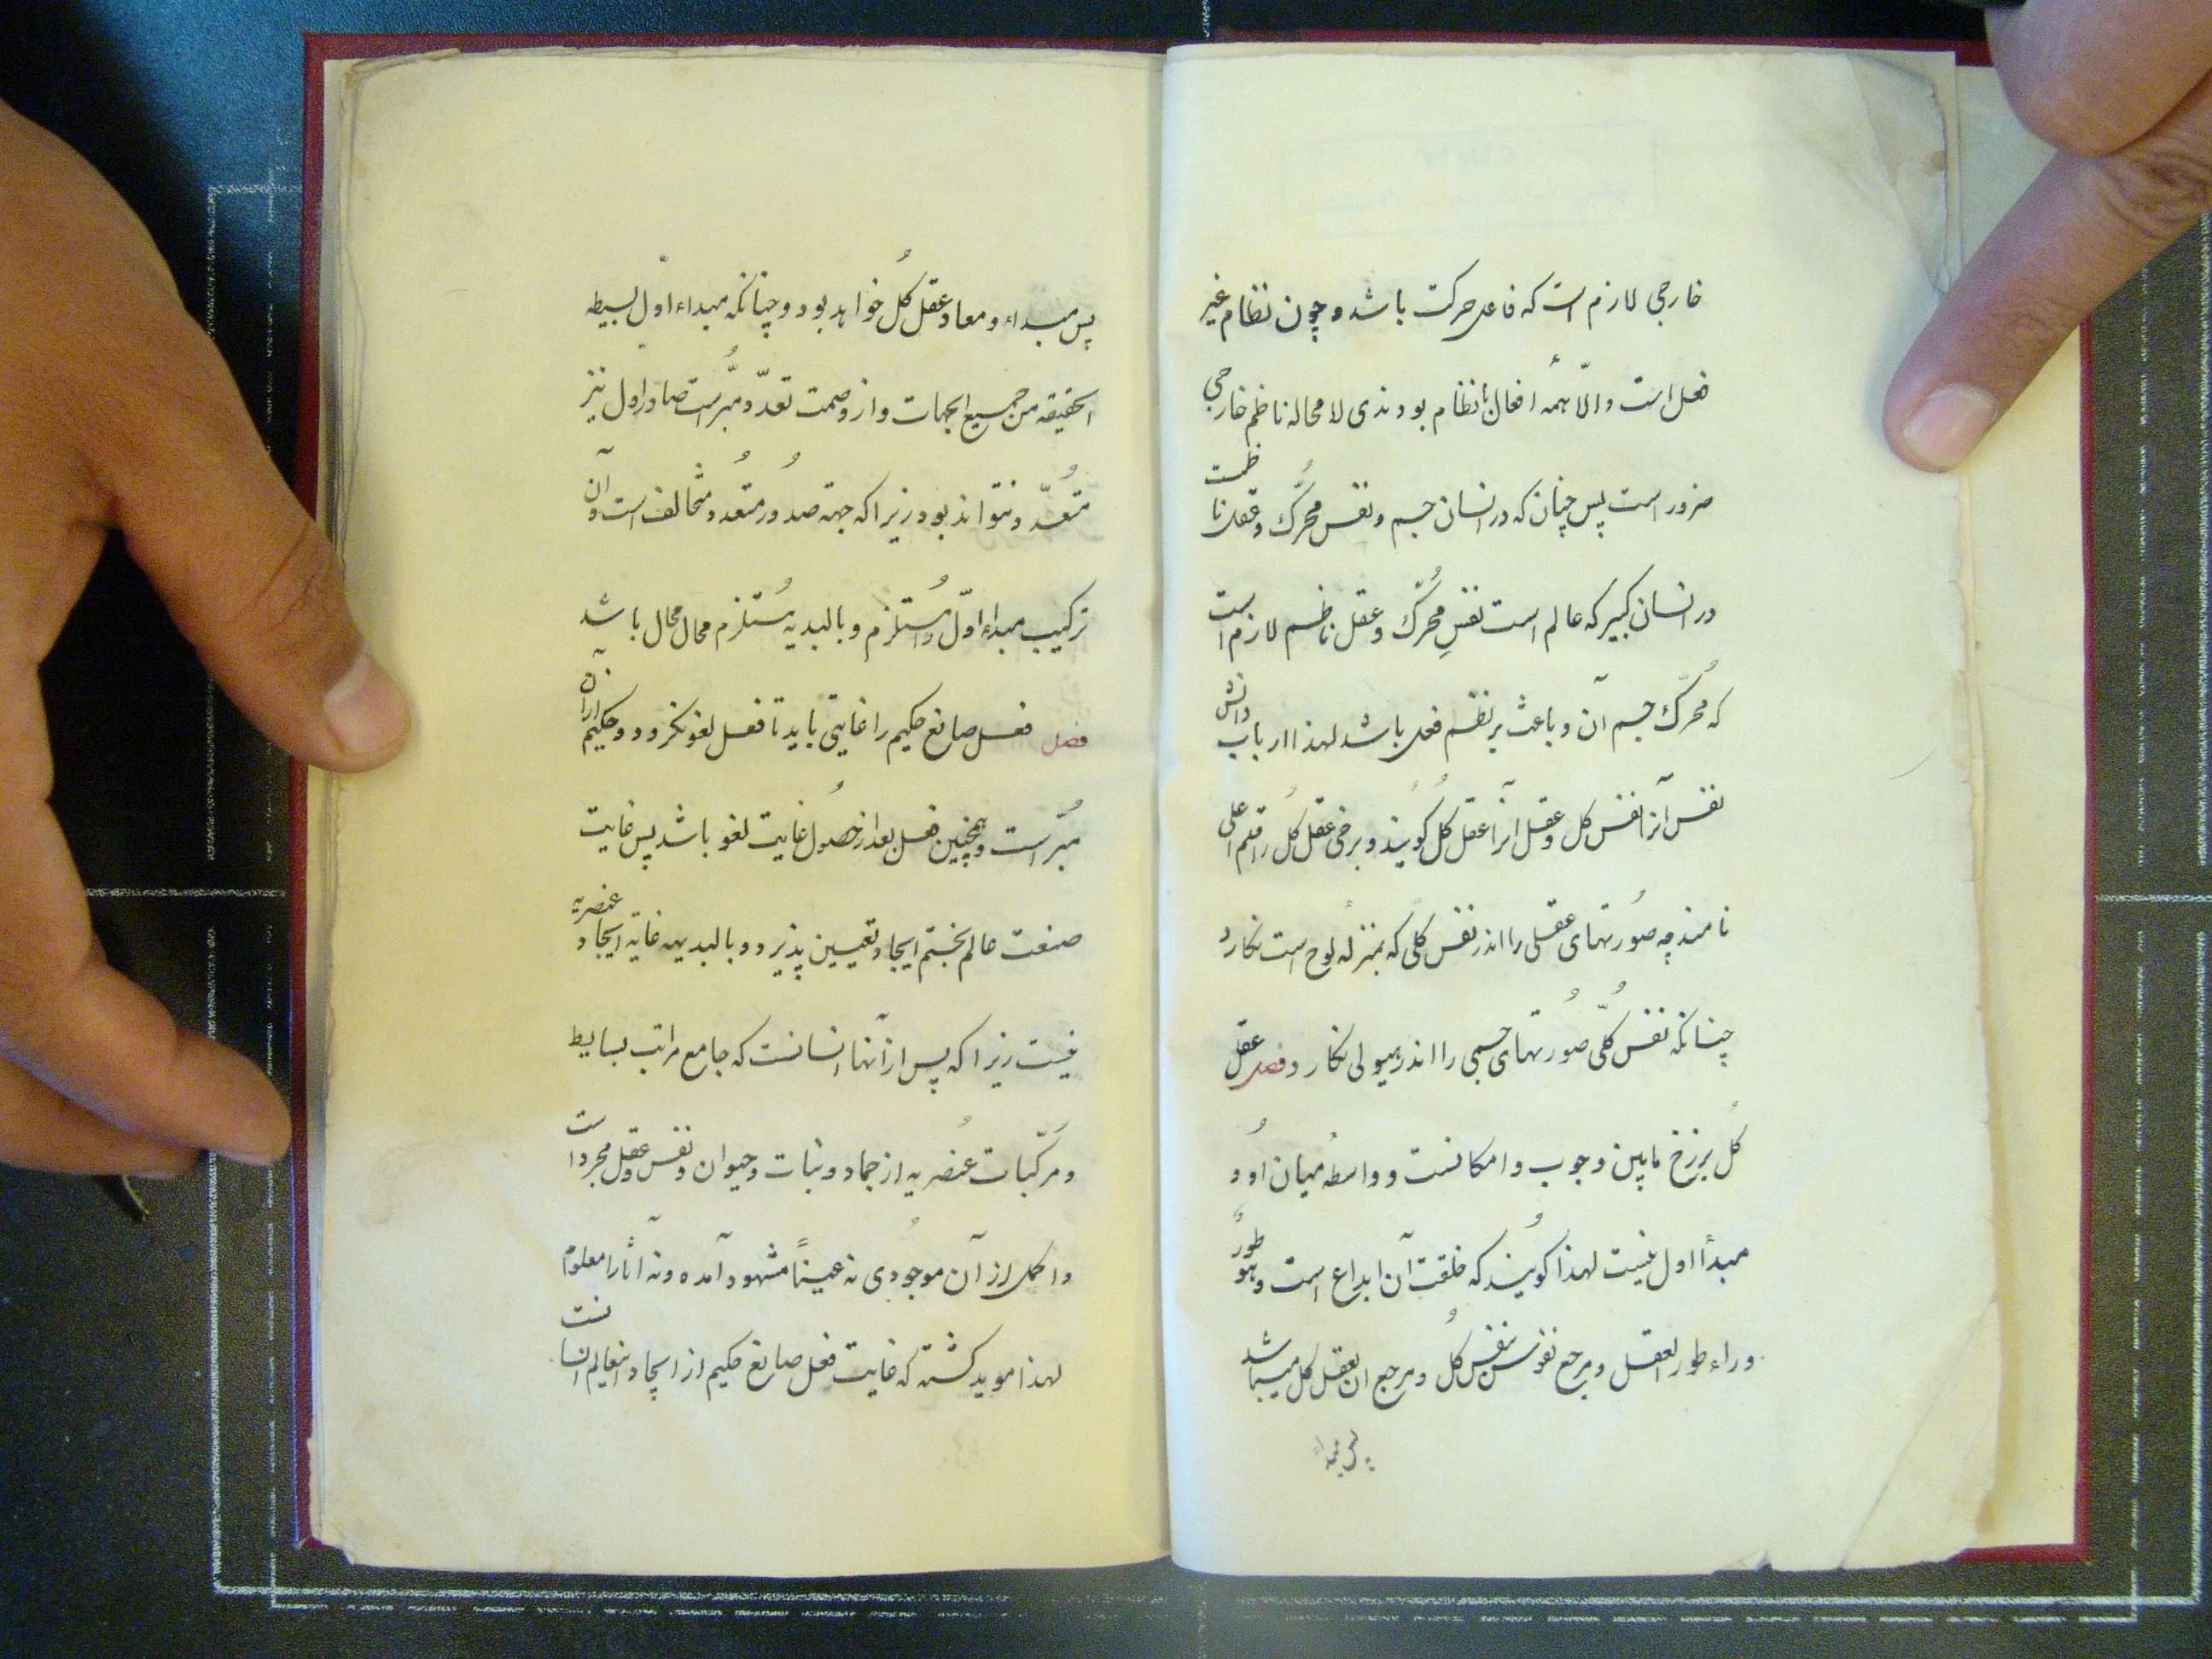 خارجی لازم است که فاعل حرکت باشد و چون نظام غیر
فعل است و الّا همهٔ افعال بانظام بودندی لا محاله ناظم خارجی
ضرور است پس چنان که در انسان جسم و نفس مُحرّک و عقل ناظمست
در انسان کبیر که عالم است نفسِ مُحرّک و عقل ناظم لازم است
که مُحرّک جسم آن و باعث بر نظم فعل باشد لهذا ارباب دانش
نفس آنرا نفس کل و عقل آنرا عقل کُل کُویند و برخی عقل کُل را قلم اعلی
نامند چه صُورتهای عقلی را اندر نفس کلّی که بمنزلهٔ لوح است نکارد
چنانکه نفس کُلّی صُورتهای جسمی را اندر هیولی نکارد فصل عقل
کُل برزخ مابین وجوب و امکانست و واسطهٔ میان اُو و
مبدأ اول نیست لهذا کُویند که خلقت آن ابداع است و هو طورٌ
وراء طور العقل و مرجع نفوس بنفس کُل و مرجع ان بعقل کل میباشد
پس مبداء
پس مبداء و معاد عقل کُل خواهد بود و چنانکه مبداء اوّل بسیطه
الحقیقه من جمیع الجهات و از وصمت تعدّد مُبرّاست صادر اول نیز
مُتعدّد نتواند بود زیرا که جهته صدُور متعُدد مُتخالف است و آن
ترکیب مبداء اوّل را مُستلزم و بالبدیه مُستلزم محال محال باشد
فصل فعل صانع حکیم را غایتی باید تا فعل لغو نکردد و حکیم از آن
مُبّراست و همچنین فعل بعد از حصُول غایت لغو باشد پس غایت
صنعت عالم بختم ایجاد تعیین پذیرد و بالبدیهه غایه ایجاد عنصریه
نیست زیرا که پس از آنها انسانست که جامع مراتب بسایط
و مُرکّبات عُنصریه از جماد و نبات و حیوان و نفس و عقل مجرداست
و اکمل از آن موجُودی نه عیناً مشهود آمده و نه آثارا معلوم
لهذا موید کشته که غایت فعل صانع حکیم از ایجاد اینعالم انسانست